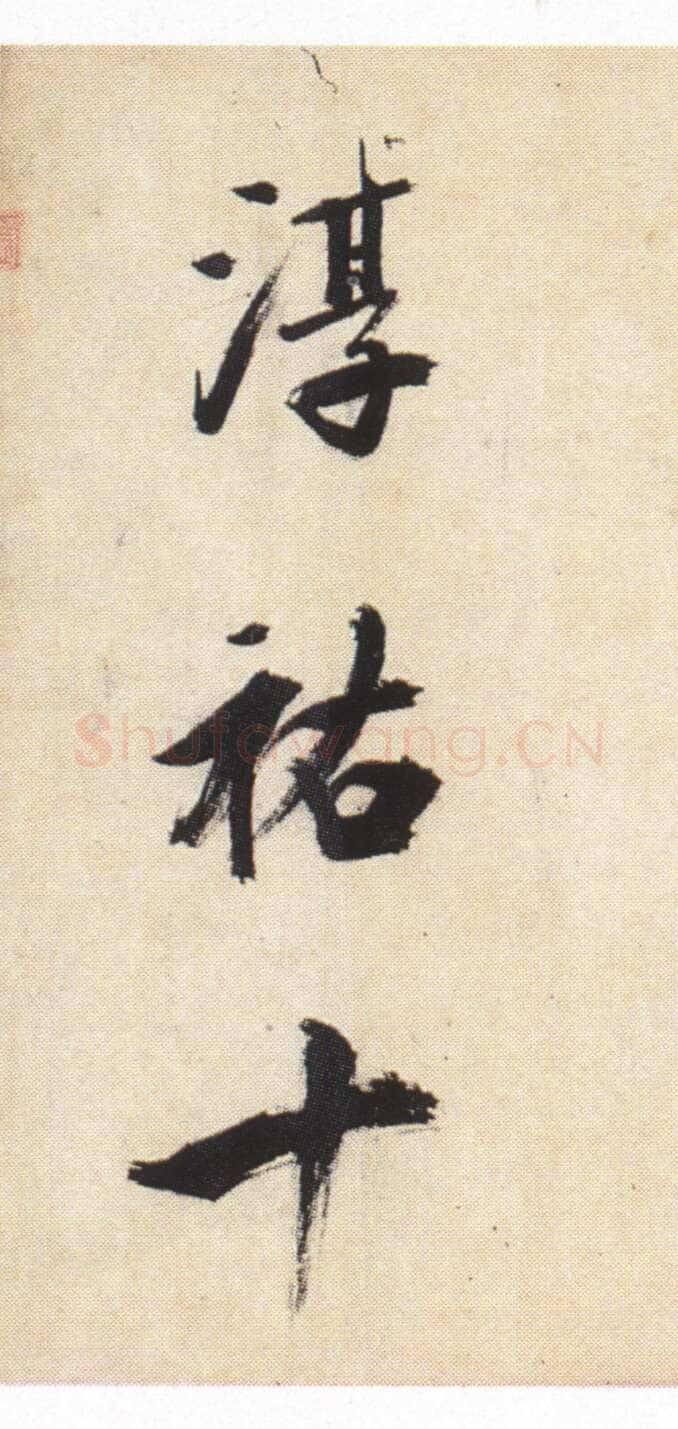 淳祐十
Shufawang.CN